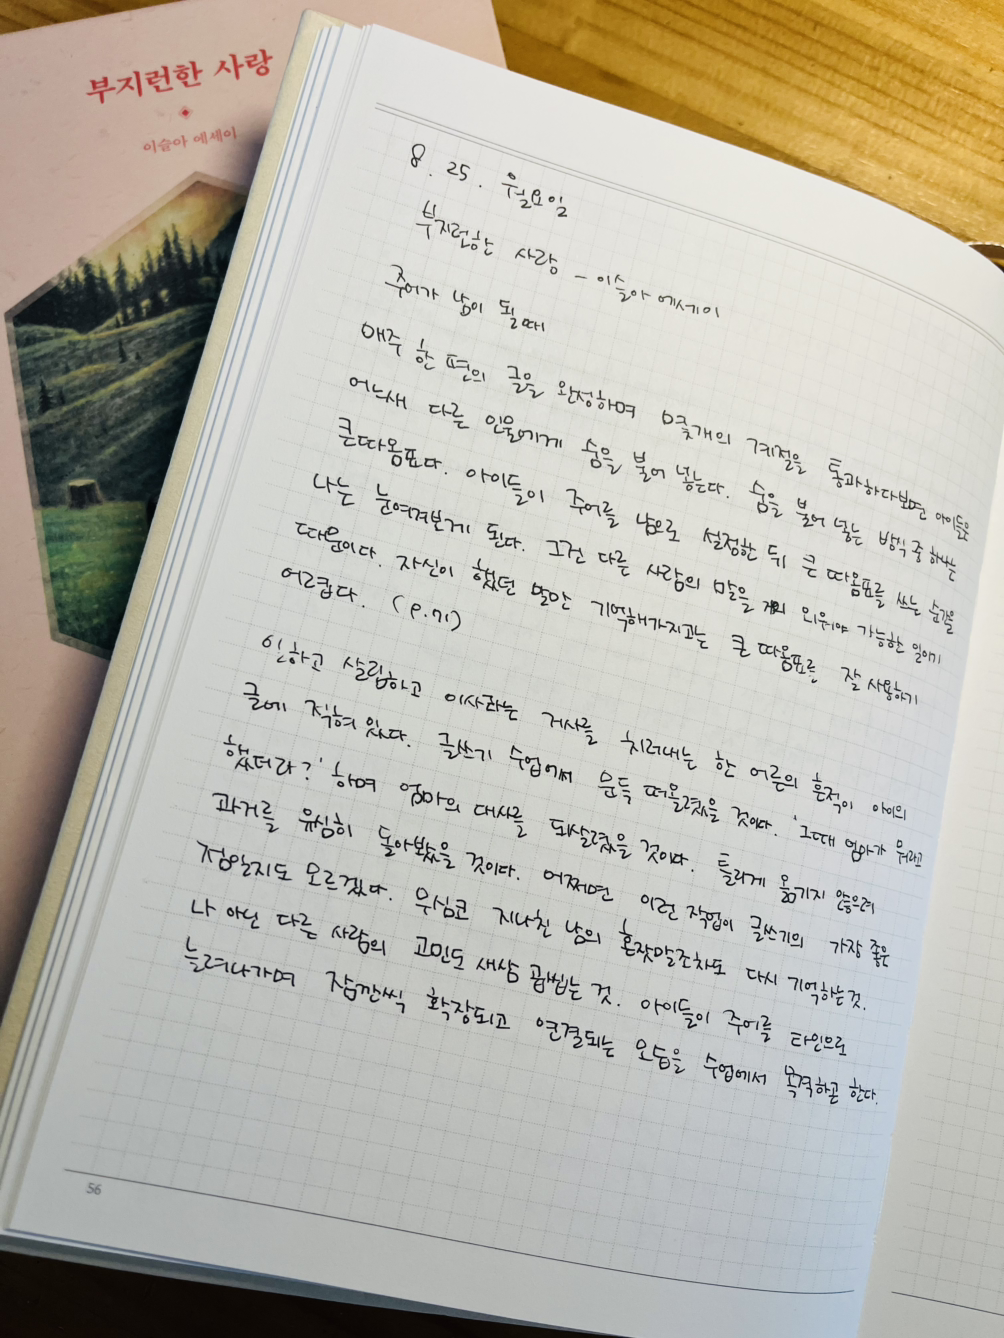 부지런한 사랑
이슬아 에세이
8. 25. 월요일
부지런한 사랑 - 이슬아 에세이
주어가 남이 될 때
매주 한 편의 글을 완성하며 몇 개의 계절을 통과하다보면 아이들은
어느새 다른 인물에게 숨을 불어 넣는다. 숨을 불어 넣는 방식 중 하나는
큰따옴표다. 아이들이 주어를 남으로 설정한 뒤 큰 따옴표를 쓰는 순간을
나는 눈여겨보게 된다. 그건 다른 사람의 말을 외워야 가능한 일이기
때문이다. 자신이 했던 말만 기억해가지고는 큰 따옴표를 잘 사용하기
어렵다. (p.71)
일하고 살림하고 이사라는 거사를 치러내는 한 어른의 흔적이 아이의
글에 적혀 있다. 글쓰기 수업에서 문득 떠올렸을 것이다. '그때 엄마가 뭐라고
했더라?' 하며 엄마의 대사를 되살렸을 것이다. 틀리게 옮기지 않으려
과거를 유심히 돌아봤을 것이다. 어쩌면 이런 작업이 글쓰기의 가장 좋은
점일지도 모르겠다. 무심코 지나친 남의 혼잣말조차도 다시 기억하는 것.
나 아닌 다른 사람의 고민도 새삼 곱씹는 것. 아이들이 주어를 타인으로
늘려나가며 잠깐씩 확장되고 연결되는 모습을 수업에서 목격하곤 한다.
56